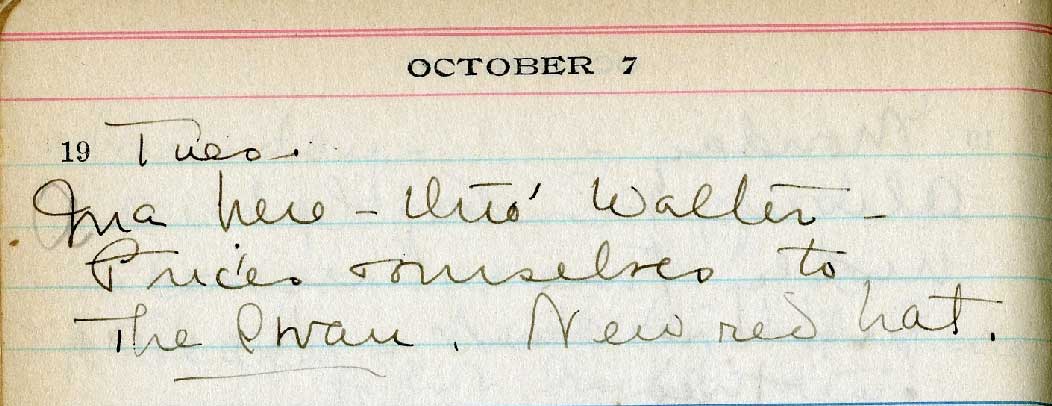 OCTOBER 7
19 Tues.
Ima here – Walter –
Prices & ourselves to
The Swan. New red hat.